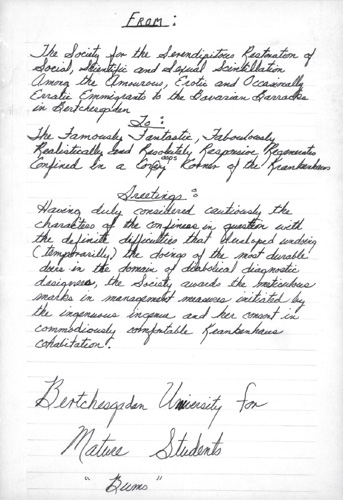 From:
The Society for the Serendipitous Restoration of
Social, Scientific and Sexual Scintillation
Among the Amourous, Erotic and Occasionally
Erratic Emmigrants to the Bavarian Barracks
in Bertchesgaden
To:
The Famously Fantastic, Faboulously
Realistically and Resolutely Responsive Regenerates
Confined in a Cozy oops Korner of the Krankenhaus
Greetings:
Having duly considered cautiously the
characters of the confinees in question with
the definite difficulties that developed undoing
(temporarilly) the doings of the most durable
doers in the domain of diabolical diagnostic
designers, the Society awards the meticulous
marks in management measures initiated by
the ingenuous ingenue and her consort in
commodiously comfortable Krankenhaus
cohabitation!
Bertchesgaden University for
Mature Students
"Bums"